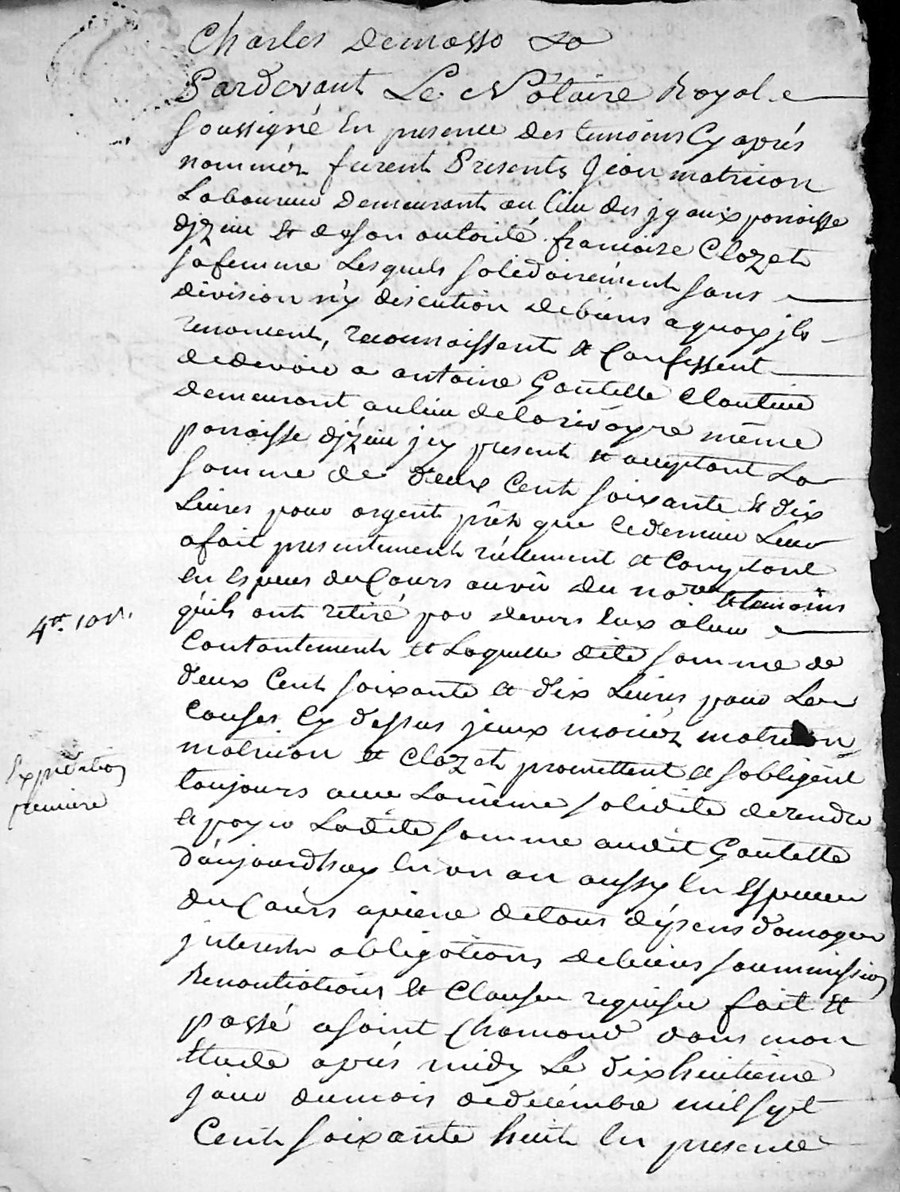 Charles Demasso
Pardevant Le Nôtaire Royal
Soussigné En presence des temoins Cy aprés
nommés furent Presents Jean matricon
Laboureur Demeurant au lieu des paroisse
djzieu Et de son autorité francoise Clozet
sa femme Lesquels solidairement sans
division n'y discution de biens a quoy jls
renoncent, reconnoissent et Confessent
de devoir a antoine Goutelle Cloutier
demeurant au lieu de la rivoyre même
paroisse djzieu jcy present et aceptant La
somme de deux Cent soixante et dix
Livres pour argent prêt que Ce dernier Leur
a fait presentement réellement et Comptant
En Especes du Cours au vû du nore et temoins
qu'ils ont retiré par devers Eux a leur
Contantement Et Laquelle dite somme de
deux Cent soixante et dix Livres pour Les
Causes Cy dessus jceux mariés
matricon et Clozet promettent et s'obligent
toujours avec La même solidité de rendre
et payer Ladite somme audit Goutelle
d'aujourdhuy En un an aussy En Especes
du Cours a peine de tous dépens domages
jnterests obligations de biens soummissions
Renontiations Et Clauses requises fait Et
passé a saint Chamond dans mon
Etude aprés midy Le dixhuitieme
jour du mois de décembre mil sept
Cent soixante huit En presence
4tt 10s.
Expedition
premiere